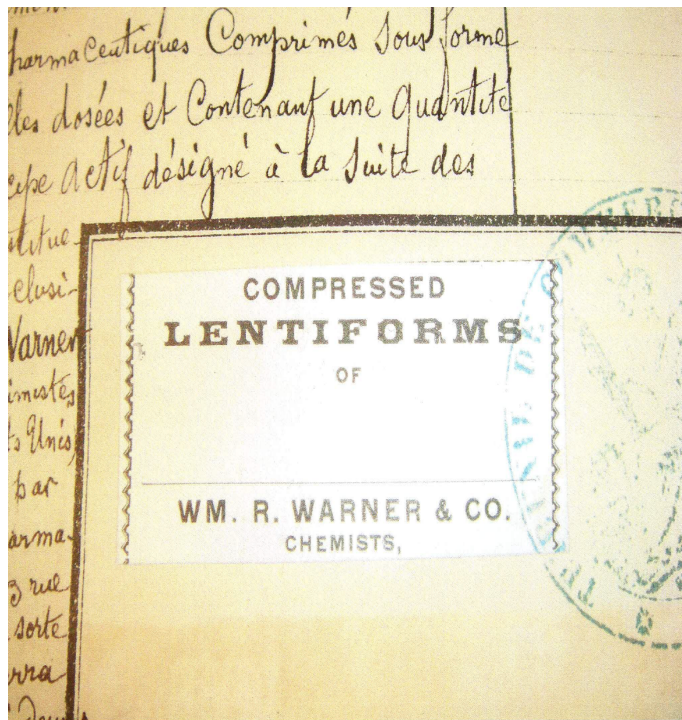 harmaceutiques Comprimés Sous forme
lles dosées et Contenant une quantité
cipe actif désigné à la Suite des
titue
clusi-
Warner
imistes
ts Unis
par
arma-
3 rue
sorte
rra
COMPRESSED
LENTIFORMS
OF
WM. R. WARNER & CO.
CHEMISTS,
TRIBUNAL DE COMMERC